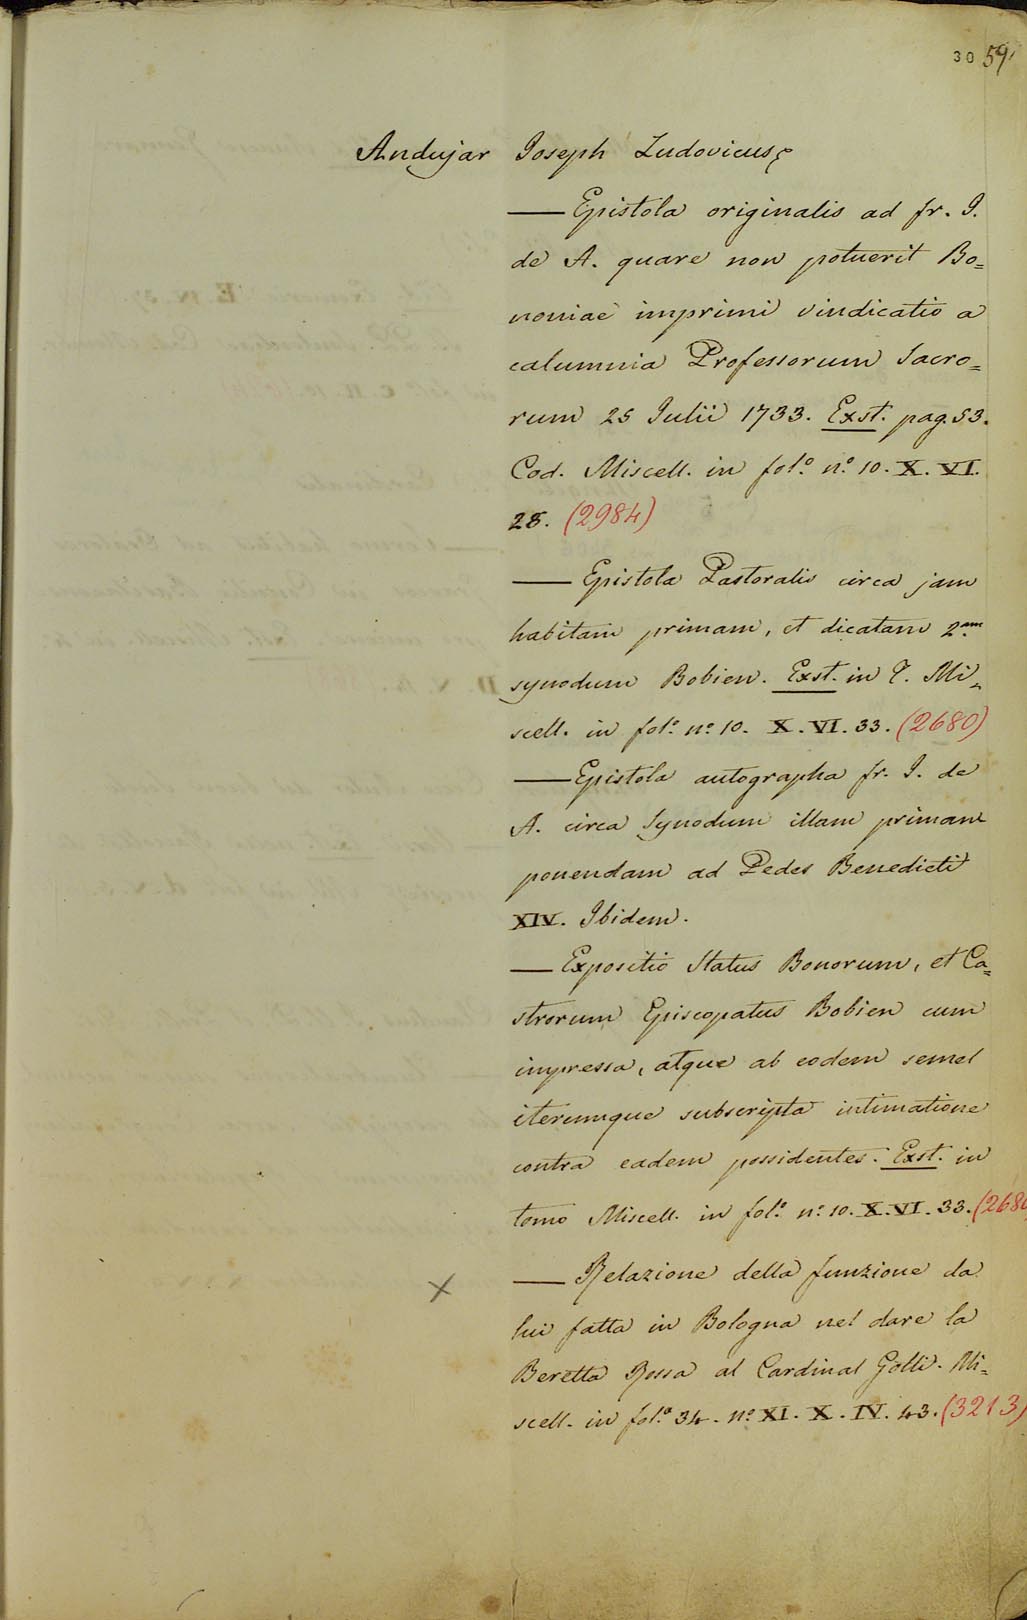 30 59
Andujar Joseph Ludovicus
— Epistola originalis ad fr. I.
de A. quare non potuerit Bo=
noniae imprimi vindicatio a
calumnia Professorum Sacro=
rum 25 Julii 1733. Exst. pag. 53.
Cod. Miscell. in fol.º n.º 10. X. VI.
28. (2984)
— Epistola Pastoralis circa jam
habitam primam, et dicatam 2.am
synodum Bobien. Exst. in T. Mi=
scell. in fol.º n.º 10. X. VI. 33. (2680)
— Epistola autographa fr. I. de
A. circa Synodum illam primam
ponendam ad Pedes Benedicti
XIV. Ibidem.
— Expositio Status Bonorum, et Ca=
strorum Episcopatus Bobien cum
impressa, atque ab eodem semel
iterumque subscripta intimatione
contra eadem possidentes. Exst. in
tomo Miscell. in fol.º n.º 10. X. VI. 33. (2680
× — Relazione della funzione da
lui fatta in Bologna nel dare la
Beretta Rossa al Cardinal Gotti. Mi=
scell. in fol.º 34. n.º XI. X. IV. 43. (3213)